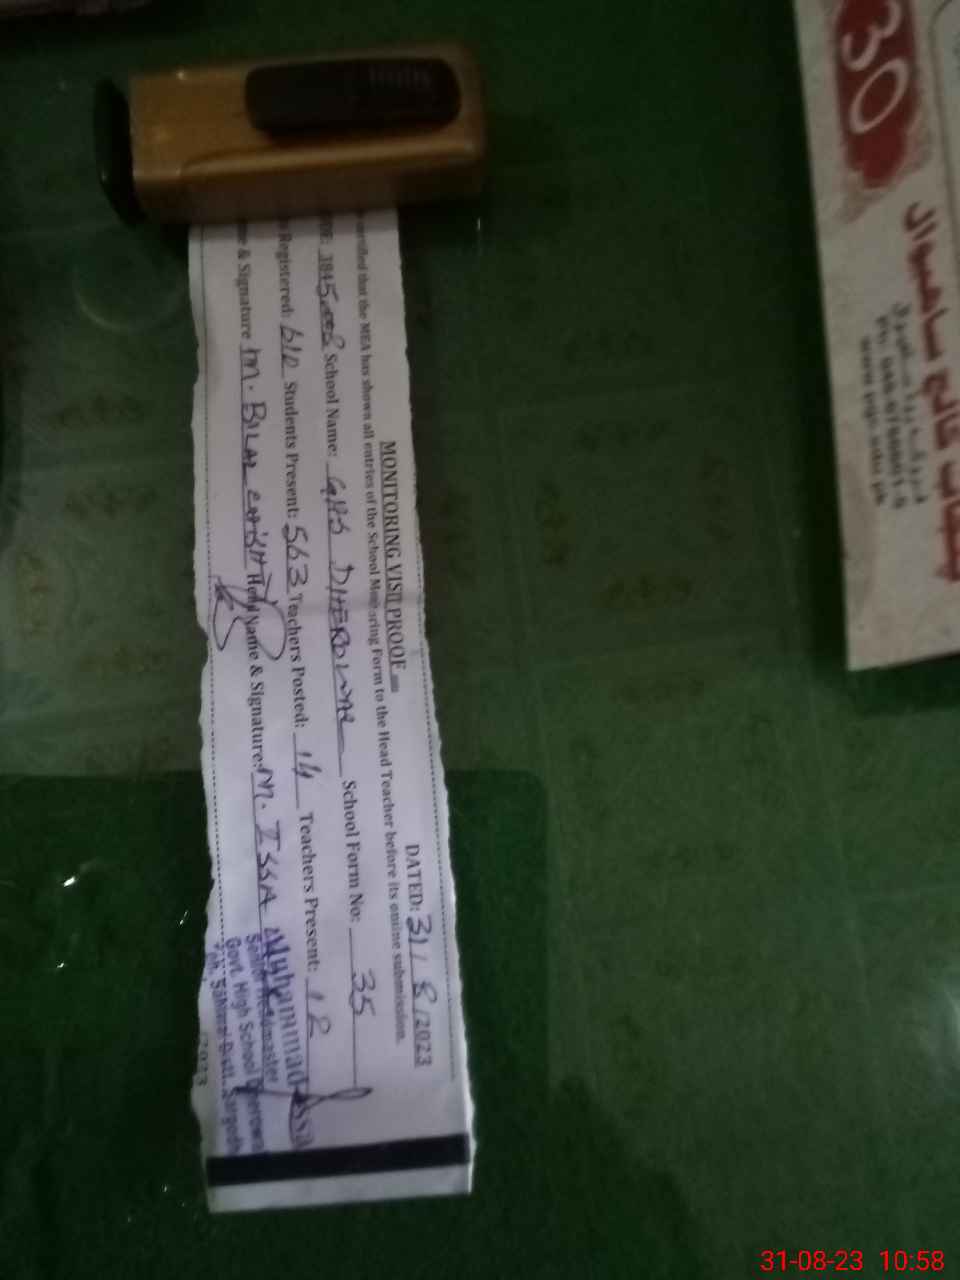 MONITORING VISIT PROOF
DATED: 31/8/2023
certified that the MEA has shown all entries of the School Monitoring Form to the Head Teacher before its online submission.
School Name: GHS DHEROWAL School Form No: 35
Registered: 610 Students Present: 563 Teachers Posted: 14 Teachers Present: 12
& Signature M. BILAL Head Name & Signature: M. ISSA
Muhammad Issa
Senior Headmaster
Govt. High School
Teh. Sahiwal Distt. Sargodha
2023
30
کالج ساہیوال
31-08-23 10:58